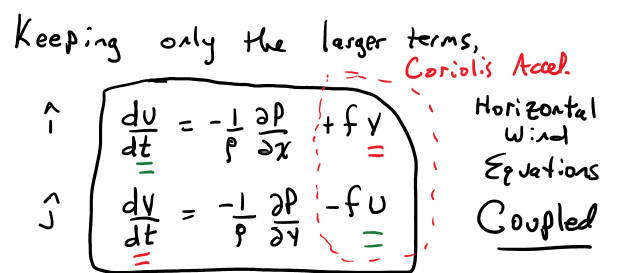 Keeping only the larger terms,
Coriolis Accel.
î du/dt = -1/ρ ∂P/∂x + f v
ĵ dv/dt = -1/ρ ∂P/∂y - f u
Horizontal
Wind
Equations
Coupled